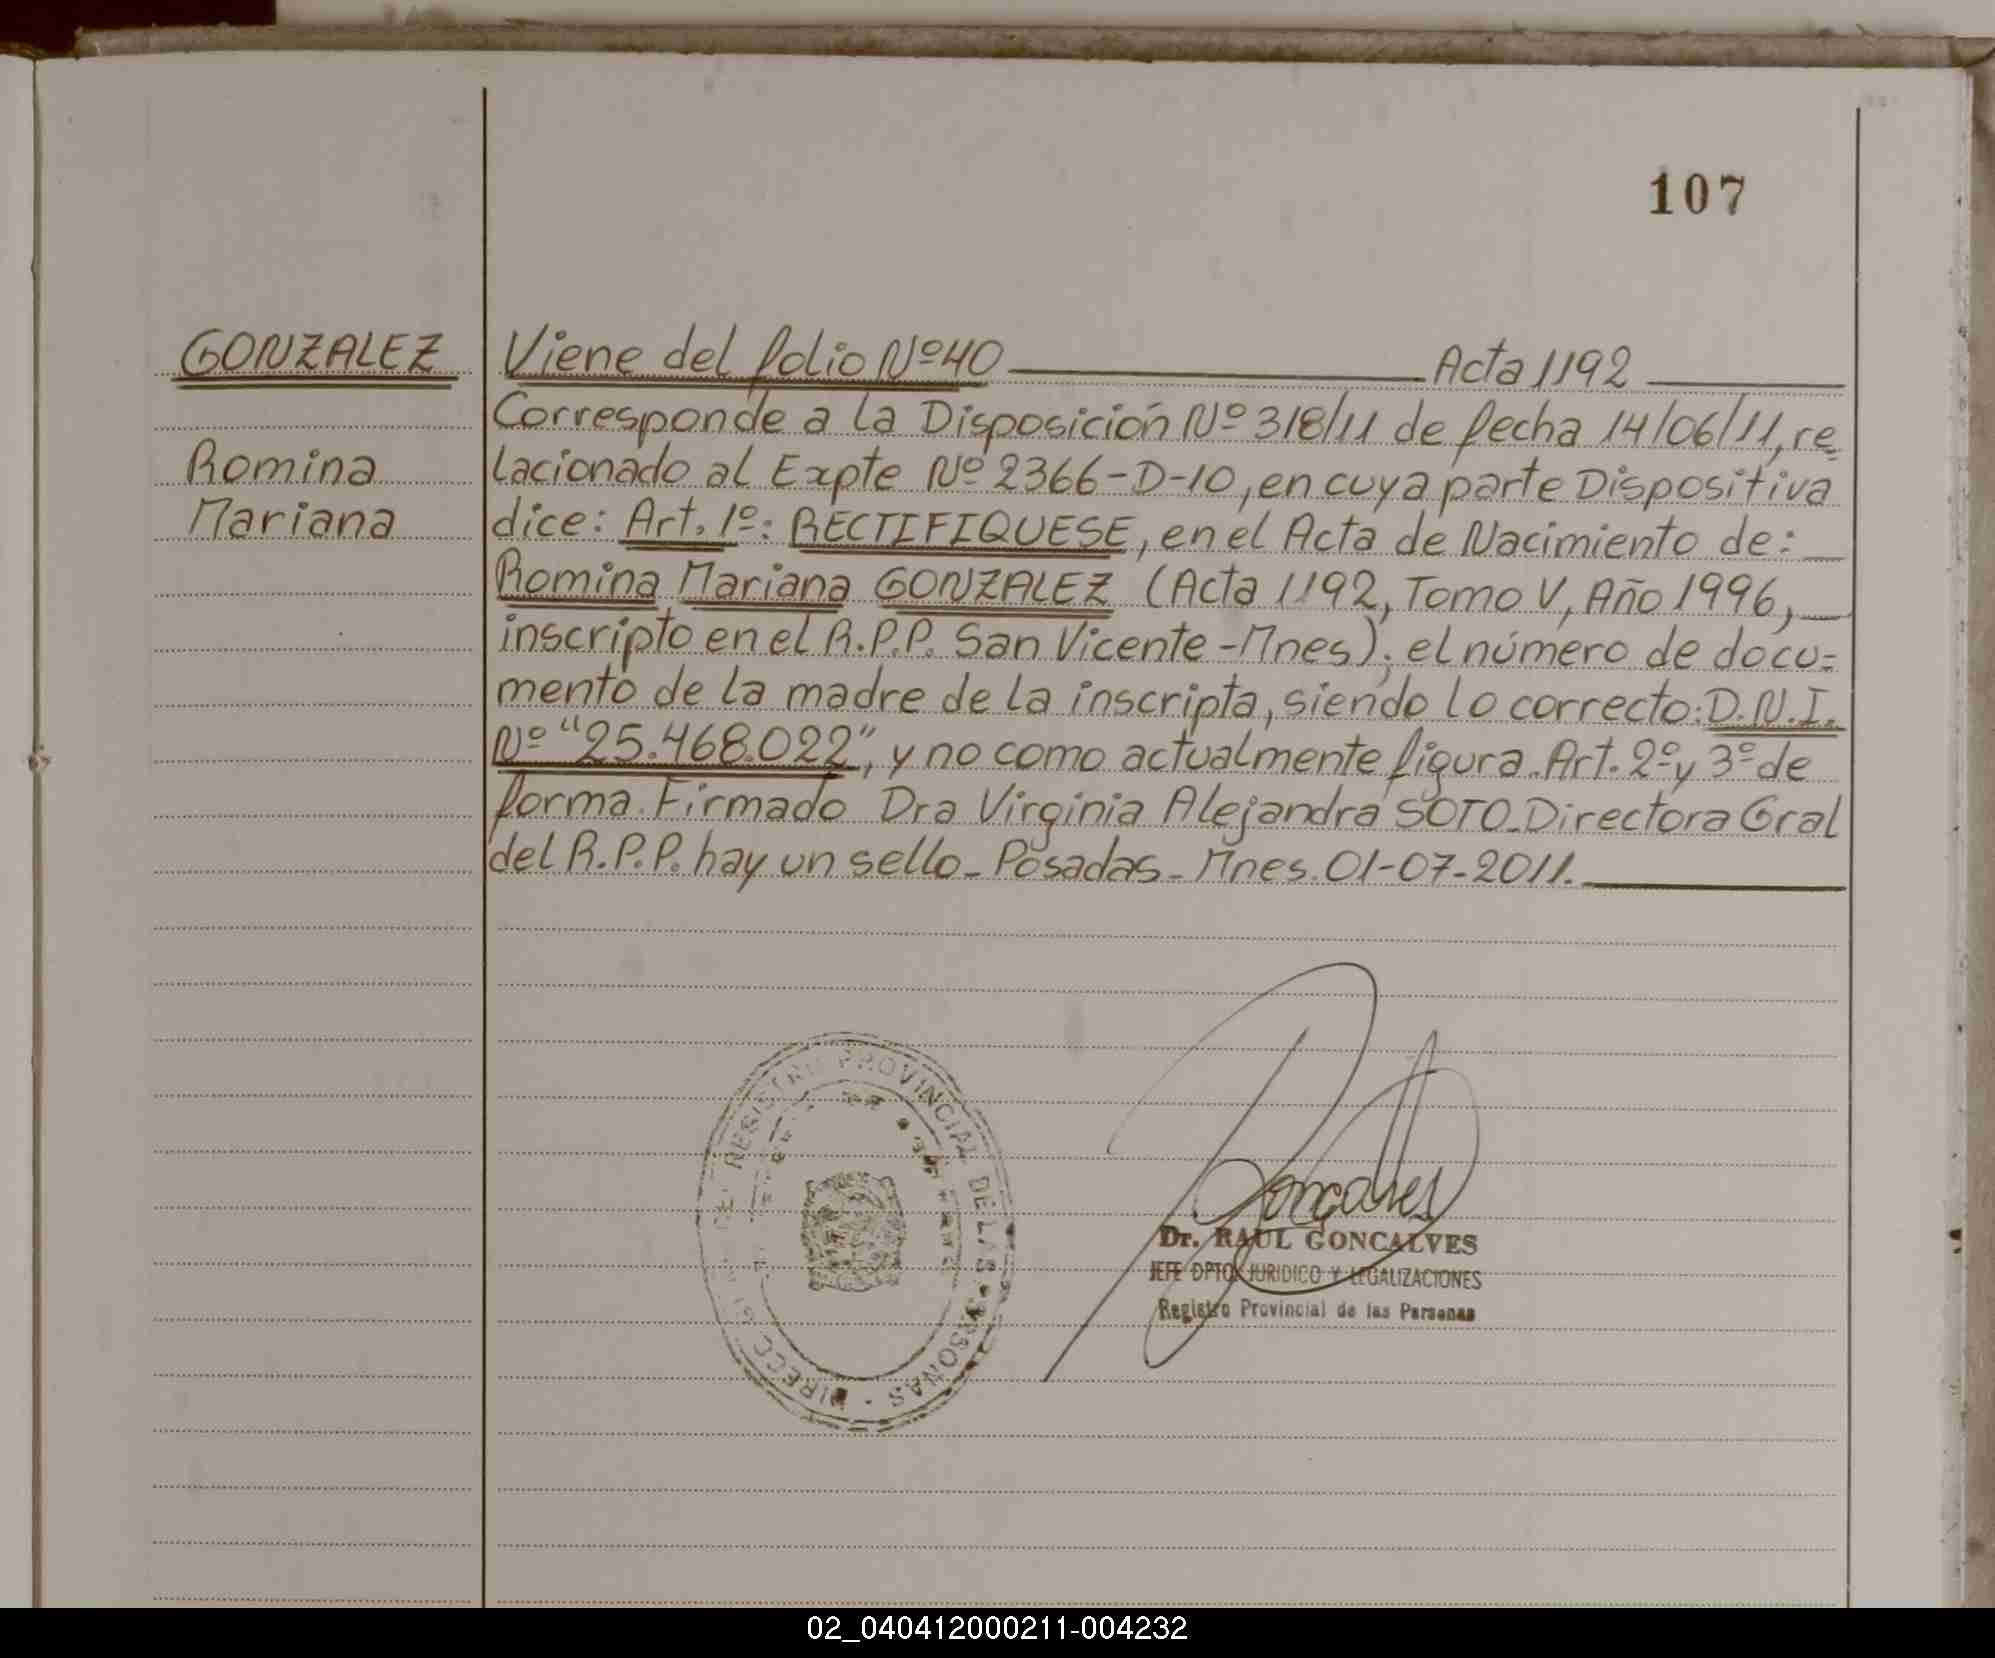 107
GONZALEZ
Romina
Mariana
Viene del folio Nº 40 Acta 1192
Corresponde a la Disposición Nº 318/11 de fecha 14/06/11, re
lacionado al Expte Nº 2366-D-10, en cuya parte Dispositiva
dice: Art. 1º: RECTIFIQUESE, en el Acta de Nacimiento de:
Romina Mariana GONZALEZ (Acta 1192, Tomo V, Año 1996,
inscripto en el R.P.P. San Vicente - Mnes); el número de docu=
mento de la madre de la inscripta, siendo lo correcto: D.N.I.
Nº "25.468.022", y no como actualmente figura. Art. 2º y 3º de
forma. Firmado Dra Virginia Alejandra SOTO_Directora Gral
del R.P.P. hay un sello_ Posadas_ Mnes. 01-07-2011.
REGISTRO PROVINCIAL DE LAS PERSONAS
Goncalves
Dr. RAUL GONCALVES
JEFE DPTO. JURIDICO Y LEGALIZACIONES
Registro Provincial de las Personas
02_040412000211-004232